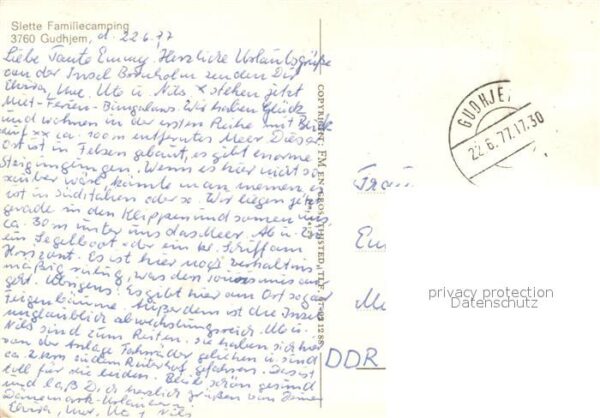 Slette Familiecamping
3760 Gudhjem, d. 22.6.77
Liebe Tante Emmy, Herzliche Urlaubsgrüße
von der Insel Bornholm senden Dir
Uwe, Ute u. Nils x stehen jetzt
Miet-Ferien-Bungalows. Wir haben Glück
und wohnen in der ersten Reihe mit Blick
auf xx ca. 100 m entferntes Meer Dieser
Ort ist in Felsen gebaut, es gibt enorme
Steigungen. Wenn es hier nicht so
sauber wäre, könnte man meinen, es
ist in Süditalien oder so. Wir liegen jetzt
gerade in den Klippen und sonnen uns,
ca. 30 m unter uns das Meer. Ab u. zu
ein Segelboot oder ein kl. Schiff am
Horizont. Es ist hier noch verhältnis
mäßig ruhig, was den
geht. Übrigens: Es gibt hier am Ort sogar
Feigenbäume. Außerdem ist die Insel
unglaublich abwechslungsreich. Ute u.
Nils sind zum Reiten. Sie haben sich hier
von der Anlage Fahrräder geliehen u. sind
ca. 2 km zu dem Reiterhof gefahren. Das ist
toll für die beiden. Bleib schön gesund
und laß Dich herzlich grüßen von Deinen
Dänemark-Urlaubern
Uwe, Ute u. Nils
COPYRIGHT:
GUDHJE
22.6.77.17.30
Frau
Em
DDR
privacy protection
Datenschutz